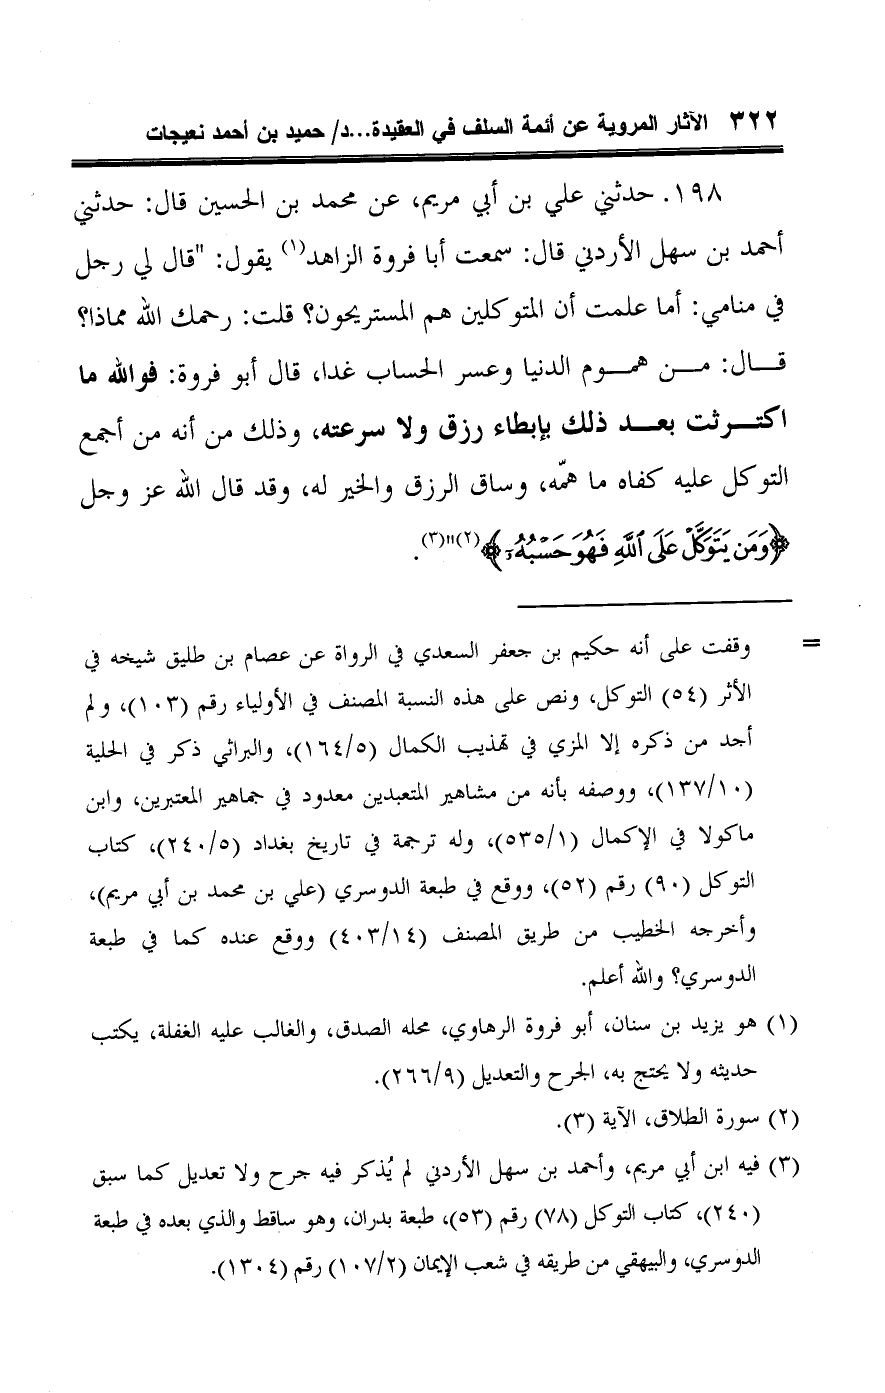 ٣٢٢ الآثار المروية عن أئمة السلف في العقيدة...د/ حميد بن أحمد نعيجات
١٩٨. حدثني علي بن أبي مريم، عن محمد بن الحسين قال: حدثني
أحمد بن سهل الأردني قال: سمعت أبا فروة الزاهد(١) يقول: "قال لي رجل
في منامي: أما علمت أن المتوكلين هم المستريحون؟ قلت: رحمك الله مماذا؟
قــال: مــن همــوم الدنيا وعسر الحساب غدا، قال أبو فروة: فوالله ما
اكتــرثت بعــد ذلك بإبطاء رزق ولا سرعته، وذلك من أنه من أجمع
التوكل عليه كفاه ما همّه، وساق الرزق والخير له، وقد قال الله عز وجل
﴿وَمَن يَتَوَكَّلْ عَلَى ٱللَّهِ فَهُوَ حَسْبُهُۥٓ﴾(٢)"(٣).
= وقفت على أنه حكيم بن جعفر السعدي في الرواة عن عصام بن طليق شيخه في
الأثر (٥٤) التوكل، ونص على هذه النسبة المصنف في الأولياء رقم (١٠٣)، ولم
أجد من ذكره إلا المزي في تهذيب الكمال (١٦٤/٥)، والبراثي ذكر في الحلية
(١٣٧/١٠)، ووصفه بأنه من مشاهير المتعبدين معدود في جماهير المعتبرين، وابن
ماكولا في الإكمال (٥٣٥/١)، وله ترجمة في تاريخ بغداد (٢٤٠/٥)، كتاب
التوكل (٩٠) رقم (٥٢)، ووقع في طبعة الدوسري (علي بن محمد بن أبي مريم)،
وأخرجه الخطيب من طريق المصنف (٤٠٣/١٤) ووقع عنده كما في طبعة
الدوسري؟ والله أعلم.
(١) هو يزيد بن سنان، أبو فروة الرهاوي، محله الصدق، والغالب عليه الغفلة، يكتب
حديثه ولا يحتج به، الجرح والتعديل (٢٦٦/٩).
(٢) سورة الطلاق، الآية (٣).
(٣) فيه ابن أبي مريم، وأحمد بن سهل الأردني لم يُذكر فيه جرح ولا تعديل كما سبق
(٢٤٠)، كتاب التوكل (٧٨) رقم (٥٣)، طبعة بدران، وهو ساقط والذي بعده في طبعة
الدوسري، والبيهقي من طريقه في شعب الإيمان (١٠٧/٢) رقم (١٣٠٤).